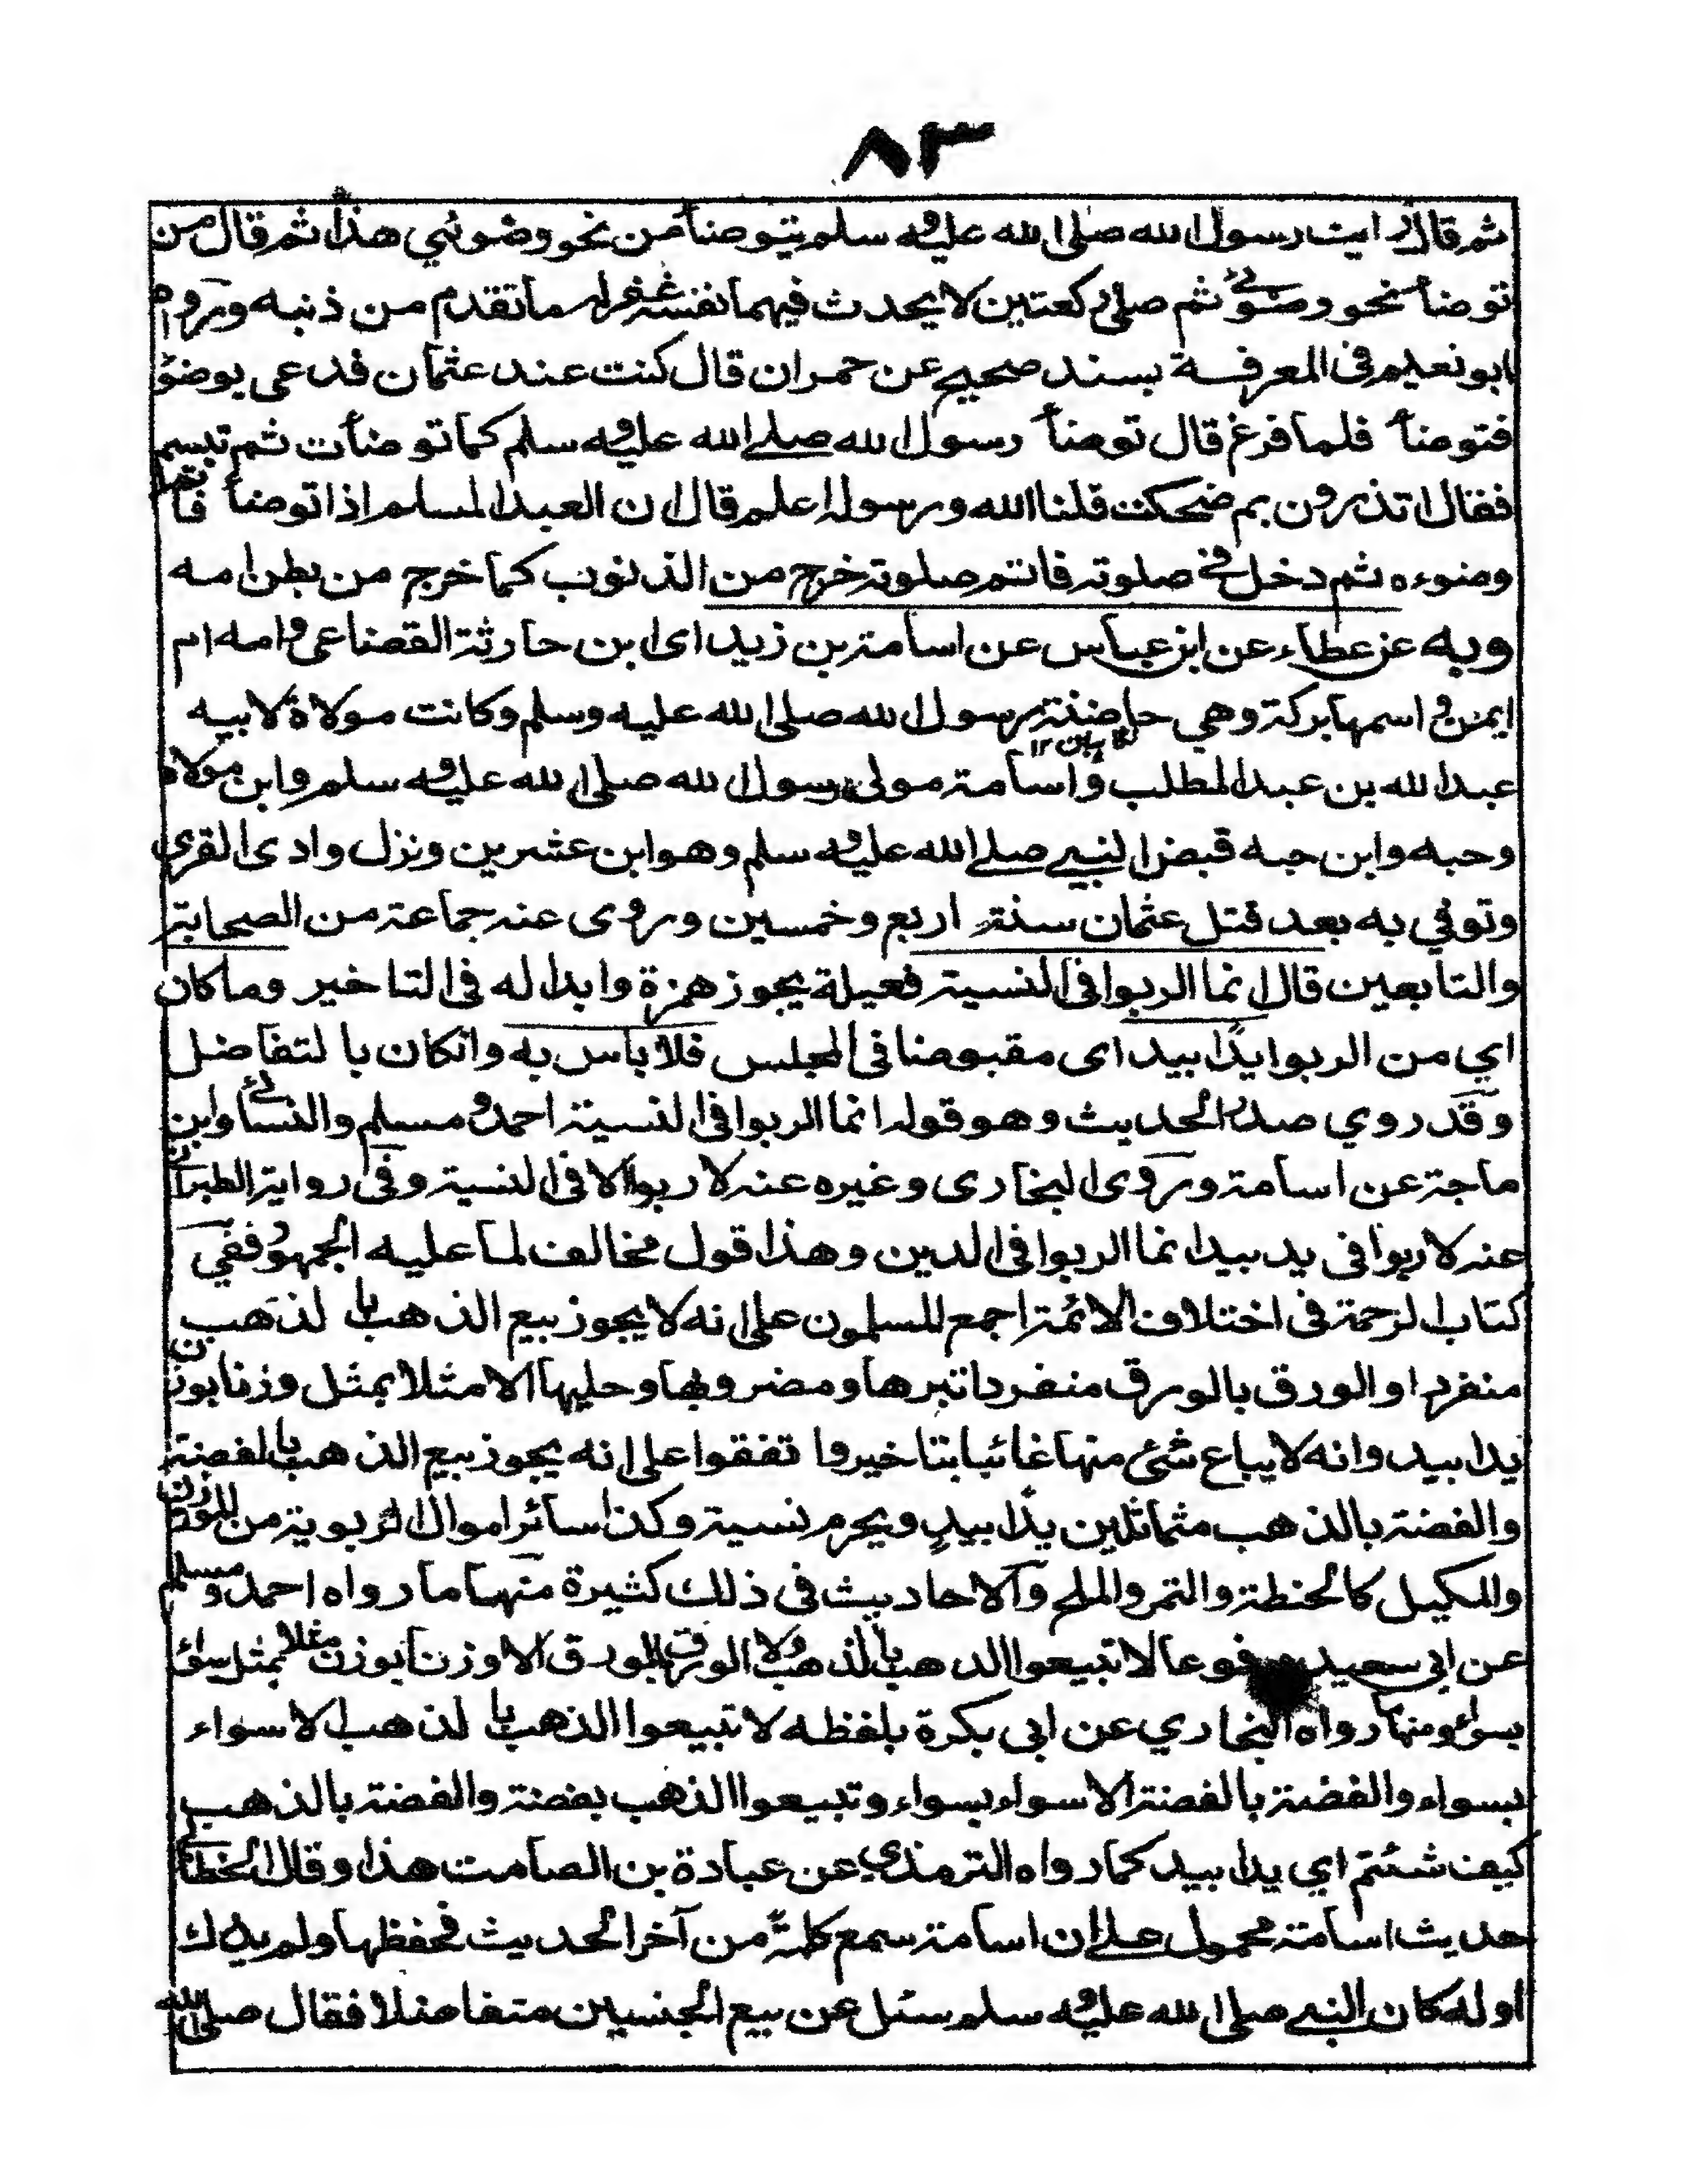 ٨٣
ثم قال رايت رسول الله صلى الله عليه وسلم يتوضأ من نحو وضوئي هذا ثم قال من
توضأ نحو وضوئي ثم صلى ركعتين لا يحدث فيهما نفسه غفر له ما تقدم من ذنبه وروى
ابو نعيم فى المعرفة بسند صحيح عن حمران قال كنت عند عثمان فدعى بوضؤ
فتوضأ فلما فرغ قال توضأ رسول الله صلے الله عليه وسلم كما توضأت ثم تبسم
فقال اتدرون بم ضحكت قلنا الله ورسوله اعلم قال ان العبد المسلم اذا توضأ فاتم
وضوءه ثم دخل في صلوته فاتم صلوته خرج من الذنوب كما خرج من بطن امه
وبه عن عطاء عن ابن عباس عن اسامة بن زيد اى ابن حارثة القضاعى وامه ام
ايمن واسمها بركة وهي حاضنة رسول الله صلى الله عليه وسلم وكانت مولاة لابيه
عبد الله بن عبد المطلب واسامة مولى رسول الله صلى الله عليه وسلم وابن مولاة
وحبه وابن حبه قبض النبي صلے الله عليه وسلم وهو ابن عشرين ونزل وادى القرى
وتوفي به بعد قتل عثمان سنة اربع وخمسين وروى عنه جماعة من الصحابة
والتابعين قال انما الربوا فى النسية فعيلة يجوز همزة وابداله فى التاخير وما كان
اي من الربوا يدًا بيد اى مقبوضا فى المجلس فلا باس به وانكان بالتفاضل
وقد روي صدر الحديث وهو قوله انما الربوا فى النسية احمد ومسلم والنسائي وابن
ماجة عن اسامة وروى البخارى وغيره عنه لا ربوا الا فى النسية وفى رواية الطبرانى
عنه لا ربوا فى يد بيد انما الربوا فى الدين وهذا قول مخالف لما عليه الجمهور ففي
كتاب الرحمة فى اختلاف الائمة اجمع المسلمون على انه لا يجوز بيع الذهب بالذهب
منفردا والورق بالورق منفردا تبرها ومضروبها وحليها الا مثلا بمثل وزنا بوزن
يدا بيد وانه لا يباع شئ منها غائبا بتاخير واتفقوا على انه يجوز بيع الذهب بالفضة
والفضة بالذهب متماثلين يدًا بيدٍ ويحرم نسية وكذا سائر اموال الربوية من الموزون
والمكيل كالحنطة والتمر والملح والاحاديث فى ذلك كثيرة منها ما رواه احمد ومسلم
عن ابي سعيد مرفوعا لا تبيعوا الذهب بالذهب ولا الورق بالورق الا وزنا بوزن مثلا بمثل سواء
بسواء ومنها رواه البخاري عن ابى بكرة بلفظه لا تبيعوا الذهب بالذهب الا سواء
بسواء والفضة بالفضة الا سواء بسواء وتبيعوا الذهب بفضة والفضة بالذهب
كيف شئتم اي يدا بيد كما رواه الترمذي عن عبادة بن الصامت هذا وقال الخطابي
حديث اسامة محمول على ان اسامة سمع كلمة من آخر الحديث فحفظها ولم يدرك
اوله كان النبي صلى الله عليه وسلم سئل عن بيع الجنسين متفاضلا فقال صلى الله